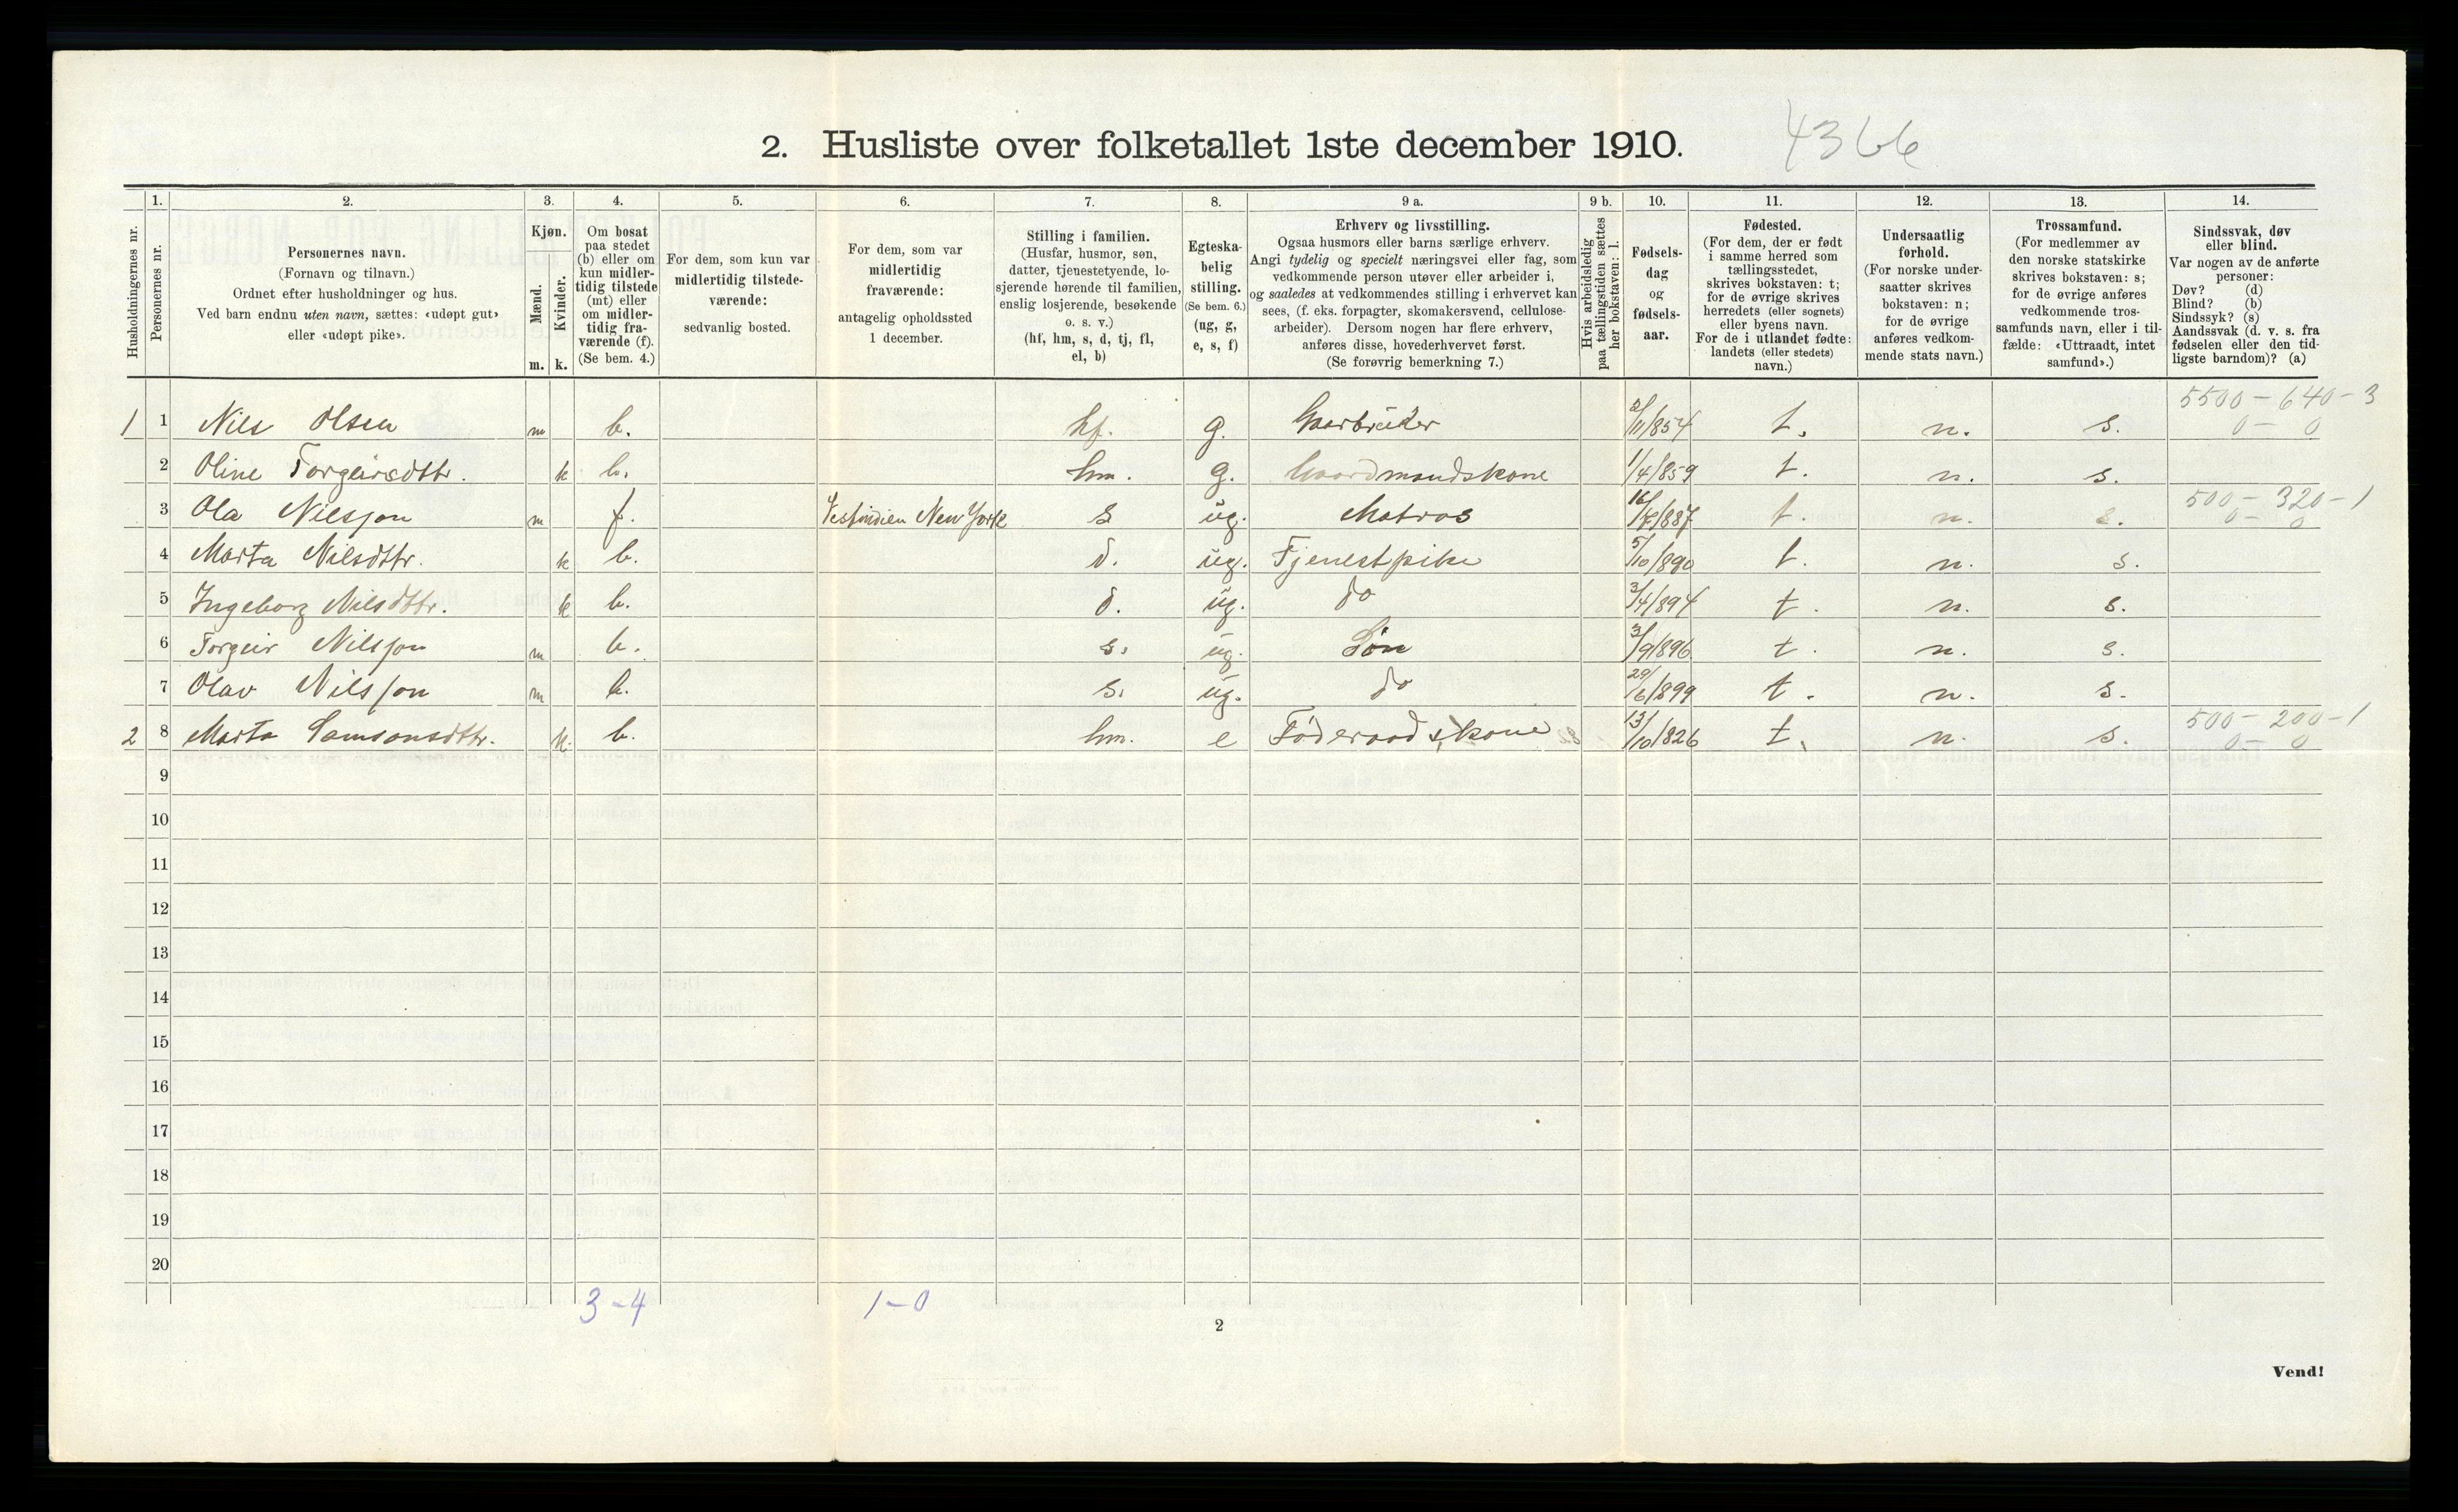 2. Husliste over folketallet 1ste december 1910.
4366
Husholdningernes nr.
1.
Personernes nr.
2.
Personernes navn.
(Fornavn og tilnavn.)
Ordnet efter husholdninger og hus.
Ved barn endnu uten navn, sættes: «udøpt gut»
eller «udøpt pike».
3.
Kjøn.
Mænd.
Kvinder.
m. k.
4.
Om bosat
paa stedet
(b) eller om
kun midler-
tidig tilstede
(mt) eller
om midler-
tidig fra-
værende (f).
(Se bem. 4.)
5.
For dem, som kun var
midlertidig tilstede-
værende:
sedvanlig bosted.
6.
For dem, som var
midlertidig
fraværende:
antagelig opholdssted
1 december.
7.
Stilling i familien.
(Husfar, husmor, søn,
datter, tjenestetyende, lo-
sjerende hørende til familien,
enslig losjerende, besøkende
o. s. v.)
(hf, hm, s, d, tj, fl,
el, b)
8.
Egteska-
belig
stilling.
(Se bem. 6.)
(ug, g,
e, s, f)
9 a.
Erhverv og livsstilling.
Ogsaa husmors eller barns særlige erhverv.
Angi tydelig og specielt næringsvei eller fag, som
vedkommende person utøver eller arbeider i,
og saaledes at vedkommendes stilling i erhvervet kan
sees, (f. eks. forpagter, skomakersvend, cellulose-
arbeider). Dersom nogen har flere erhverv,
anføres disse, hovederhvervet først.
(Se forøvrig bemerkning 7.)
9 b.
Hvis arbeidsledig
paa tællingstiden sættes
her bokstaven: l.
10.
Fødsels-
dag
og
fødsels-
aar.
11.
Fødested.
(For dem, der er født
i samme herred som
tællingsstedet,
skrives bokstaven: t;
for de øvrige skrives
herredets (eller sognets)
eller byens navn.
For de i utlandet fødte:
landets (eller stedets)
navn.)
12.
Undersaatlig
forhold.
(For norske under-
saatter skrives
bokstaven: n;
for de øvrige
anføres vedkom-
mende stats navn.)
13.
Trossamfund.
(For medlemmer av
den norske statskirke
skrives bokstaven: s;
for de øvrige anføres
vedkommende tros-
samfunds navn, eller i til-
fælde: «Uttraadt, intet
samfund».)
14.
Sindssvak, døv
eller blind.
Var nogen av de anførte
personer:
Døv? (d)
Blind? (b)
Sindssyk? (s)
Aandssvak (d. v. s. fra
fødselen eller den tid-
ligste barndom)? (a)
5500 - 640 - 3
1 1 Nils Olsen m b. hf. g. Gaarbruker 2/11/854 t. n. s. 0 - 0
2 Oline Torgeirsdttr. k b. hm. g. Gaardmandskone 1/4/859 t. n. s.
3 Ola Nilsson m f. Vestindien New York s ug. Matros 16/7/887 t. n. s. 500 - 320 - 1
0 - 0
4 Marta Nilsdttr. k b. d. ug. Tjenestpike 5/10/890 t. n. s.
5 Ingeborg Nilsdttr. k b. d. ug. do 3/4/894 t. n. s.
6 Torgeir Nilsson m b. s. ug. Søn 3/9/896 t. n. s.
7 Olav Nilsson m b. s. ug. do 29/6/899 t. n. s.
2 8 Marta Samsonsdttr. k. b. hm. e Føderaadskone 13/10/826 t. n. s. 500 - 200 - 1
0 - 0
9
10
11
12
13
14
15
16
17
18
19
20
3 - 4 1 - 0
2
Vend!